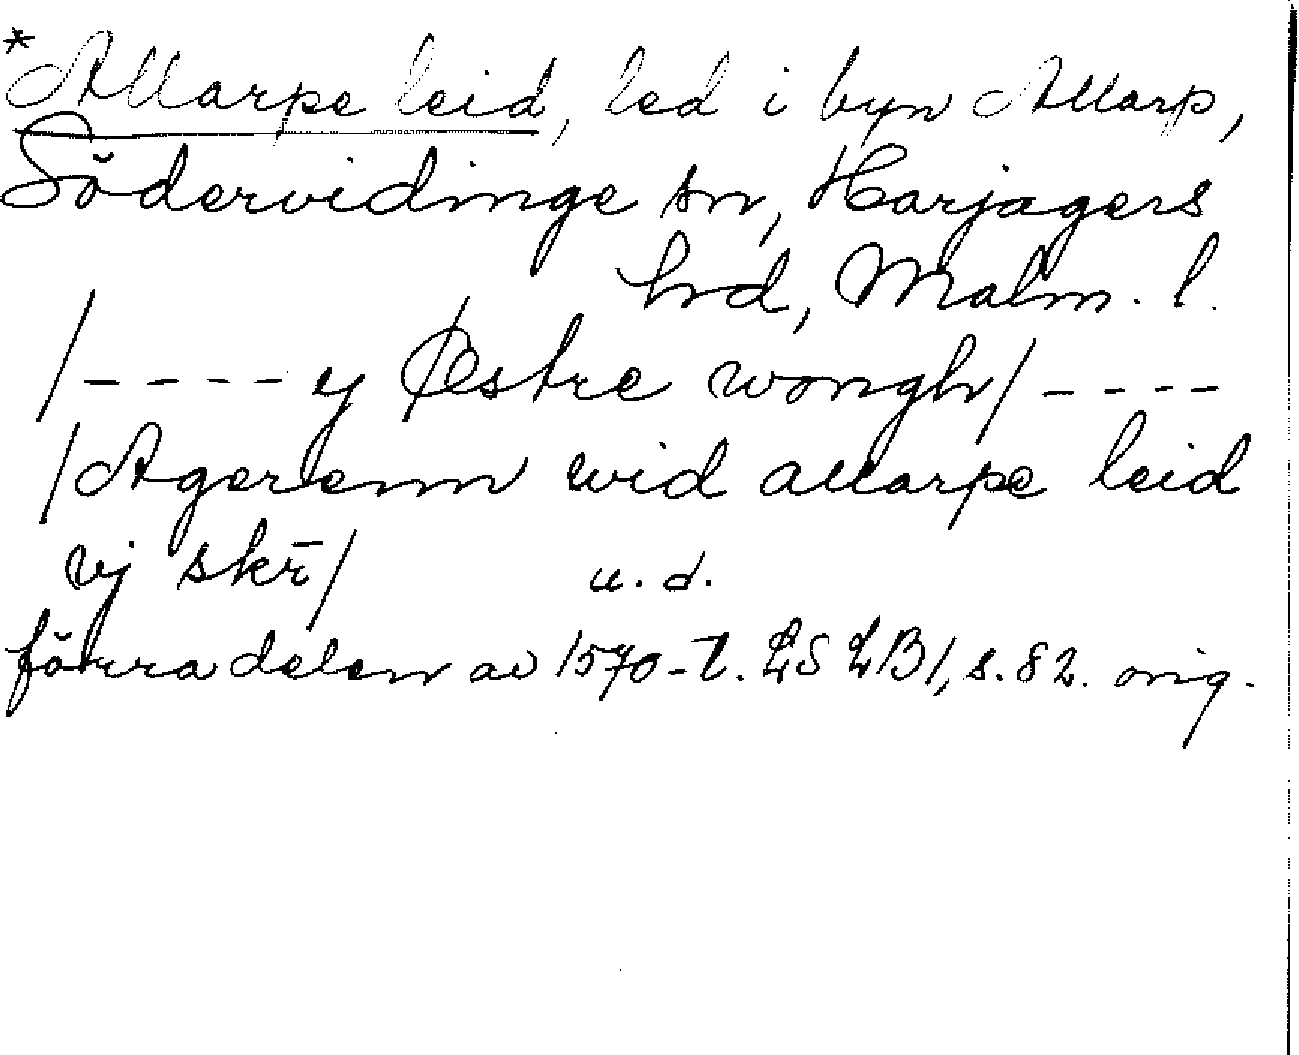 *Allarpe leid, led i byn Allarp,
Södervidinge sn, Harjagers
hrd, Malm. l.
/---- y Østre wongh/----
/Agerlenn wid allarpe leid
vj skr̄/ u. d.
förra delen av 1570-t. LS LB1, s. 82. orig.